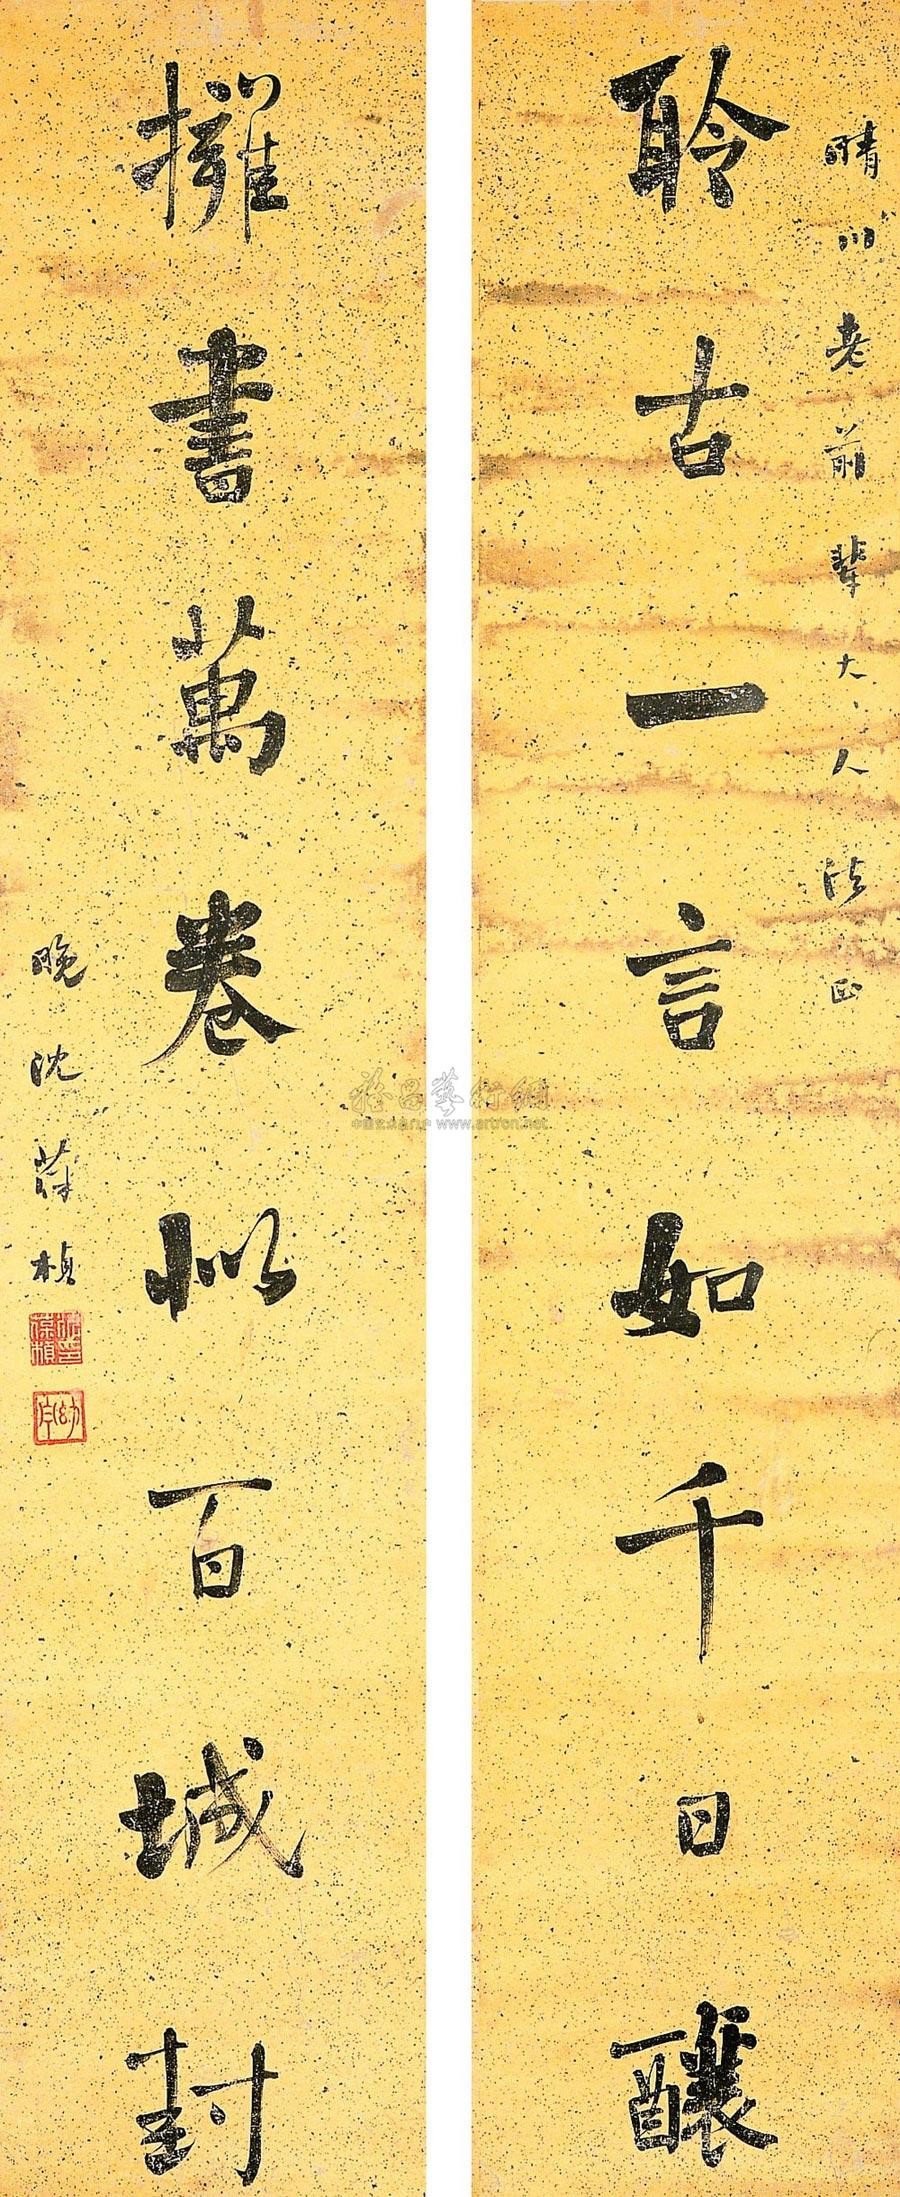 晴川老前輩大人法正
聆古一言如千日釀
擁書萬卷似百城封
晚沈葆楨
沈葆楨印
幼丹
雅昌藝術網
www.artron.net